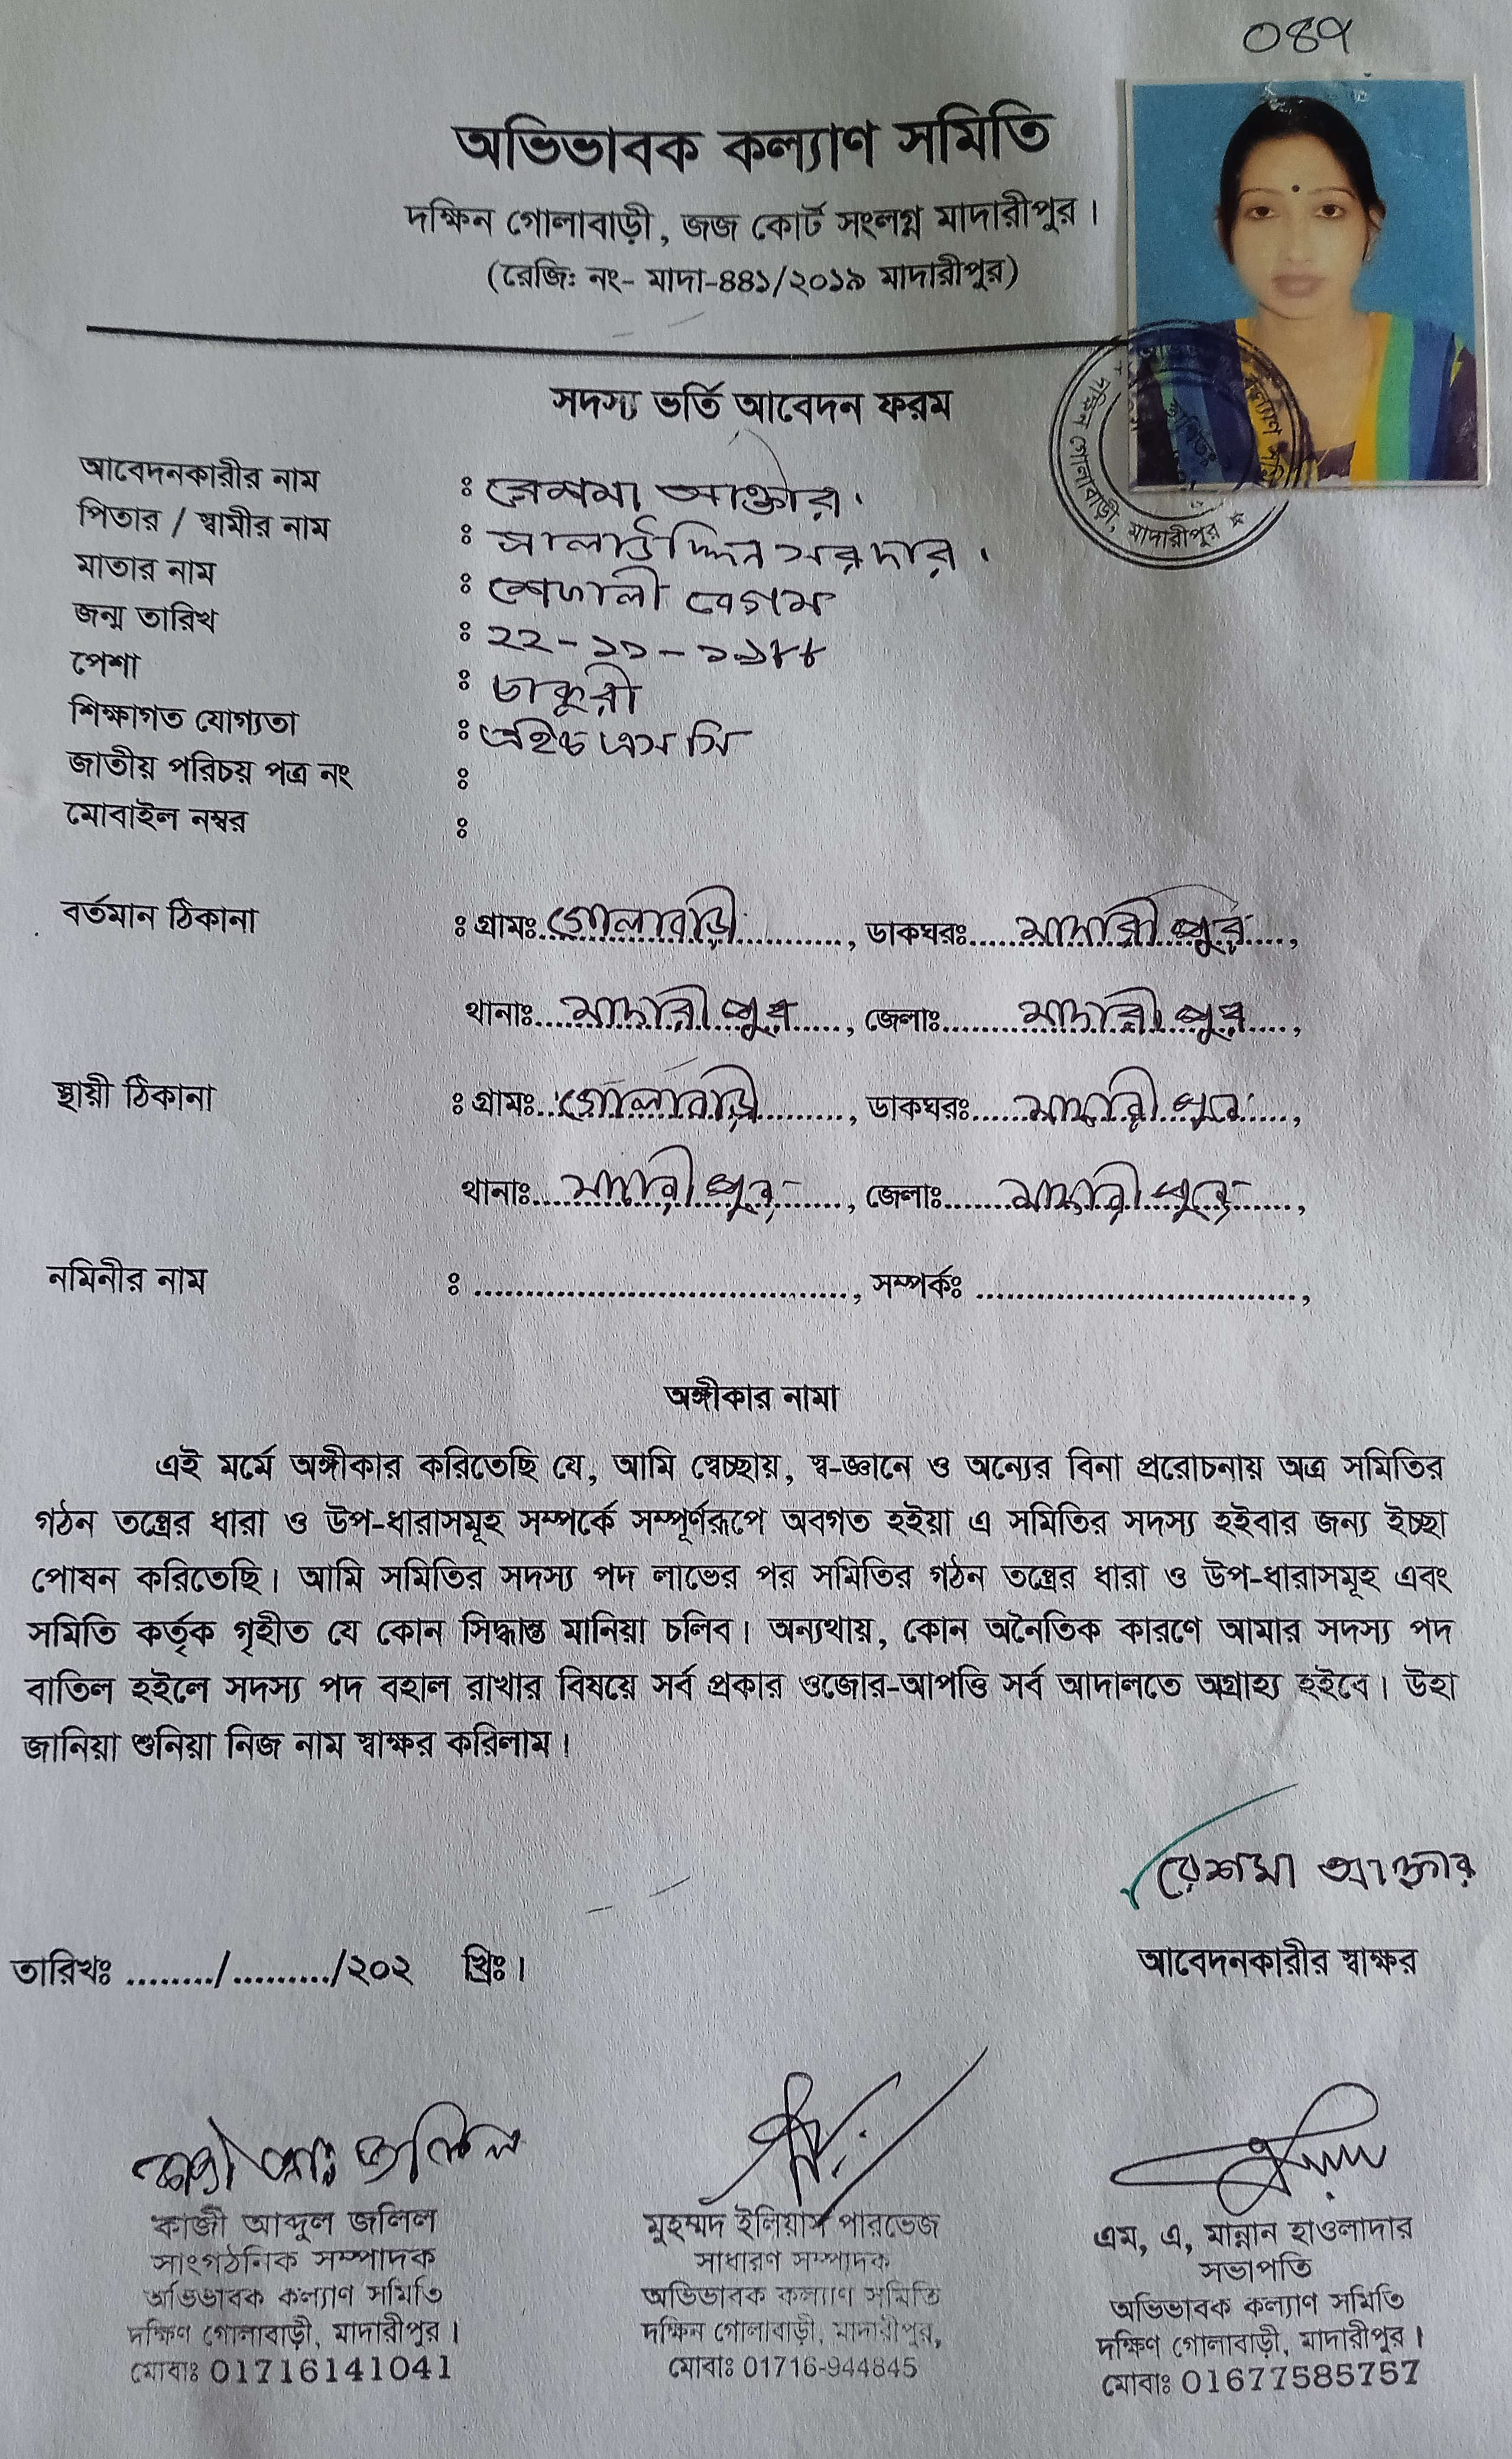 ০৪৭
অভিভাবক কল্যাণ সমিতি
দক্ষিন গোলাবাড়ী, জজ কোর্ট সংলগ্ন মাদারীপুর।
(রেজিঃ নং- মাদা-৪৪১/২০১৯ মাদারীপুর)
দক্ষিন গোলাবাড়ী, মাদারীপুর
সদস্য ভর্তি আবেদন ফরম
আবেদনকারীর নাম : রেশমা আক্তার
পিতার / স্বামীর নাম : সালাউদ্দিন সরদার
মাতার নাম : শেফালী বেগম
জন্ম তারিখ : ২২-১১-১৯৮৮
পেশা : চাকুরী
শিক্ষাগত যোগ্যতা : এইচ এস সি
জাতীয় পরিচয় পত্র নং :
মোবাইল নম্বর :
বর্তমান ঠিকানা : গ্রামঃ গোলাবাড়ী, ডাকঘরঃ মাদারীপুর,
থানাঃ মাদারীপুর, জেলাঃ মাদারীপুর,
স্থায়ী ঠিকানা : গ্রামঃ গোলাবাড়ী, ডাকঘরঃ মাদারীপুর,
থানাঃ মাদারীপুর, জেলাঃ মাদারীপুর,
নমিনীর নাম : ......................................, সম্পর্কঃ ................................,
অঙ্গীকার নামা
এই মর্মে অঙ্গীকার করিতেছি যে, আমি স্বেচ্ছায়, স্ব-জ্ঞানে ও অন্যের বিনা প্ররোচনায় অত্র সমিতির
গঠন তন্ত্রের ধারা ও উপ-ধারাসমূহ সম্পর্কে সম্পূর্ণরূপে অবগত হইয়া এ সমিতির সদস্য হইবার জন্য ইচ্ছা
পোষন করিতেছি। আমি সমিতির সদস্য পদ লাভের পর সমিতির গঠন তন্ত্রের ধারা ও উপ-ধারাসমূহ এবং
সমিতি কর্তৃক গৃহীত যে কোন সিদ্ধান্ত মানিয়া চলিব। অন্যথায়, কোন অনৈতিক কারণে আমার সদস্য পদ
বাতিল হইলে সদস্য পদ বহাল রাখার বিষয়ে সর্ব প্রকার ওজোর-আপত্তি সর্ব আদালতে অগ্রাহ্য হইবে। উহা
জানিয়া শুনিয়া নিজ নাম স্বাক্ষর করিলাম।
রেশমা আক্তার
তারিখঃ ......../........./২০২ খ্রিঃ। আবেদনকারীর স্বাক্ষর
কাজী আঃ জলিল
কাজী আব্দুল জলিল
সাংগঠনিক সম্পাদক
অভিভাবক কল্যাণ সমিতি
দক্ষিণ গোলাবাড়ী, মাদারীপুর।
মোবাঃ 01716141041
মুহম্মদ ইলিয়াস পারভেজ
সাধারণ সম্পাদক
অভিভাবক কল্যাণ সমিতি
দক্ষিন গোলাবাড়ী, মাদারীপুর,
মোবাঃ 01716-944845
এম, এ, মান্নান হাওলাদার
সভাপতি
অভিভাবক কল্যাণ সমিতি
দক্ষিণ গোলাবাড়ী, মাদারীপুর।
মোবাঃ 01677585757